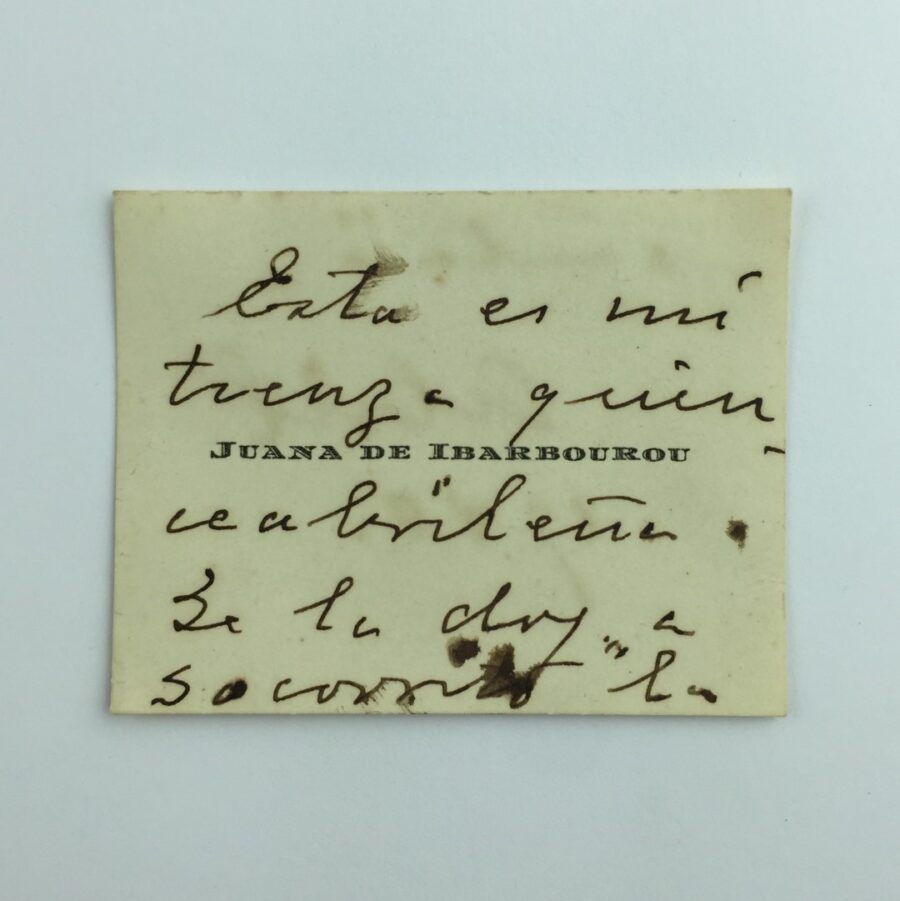 Esta es mi
trenza quin-
JUANA DE IBARBOUROU
ceabrileña.
Se la doy a
Socorrito "la